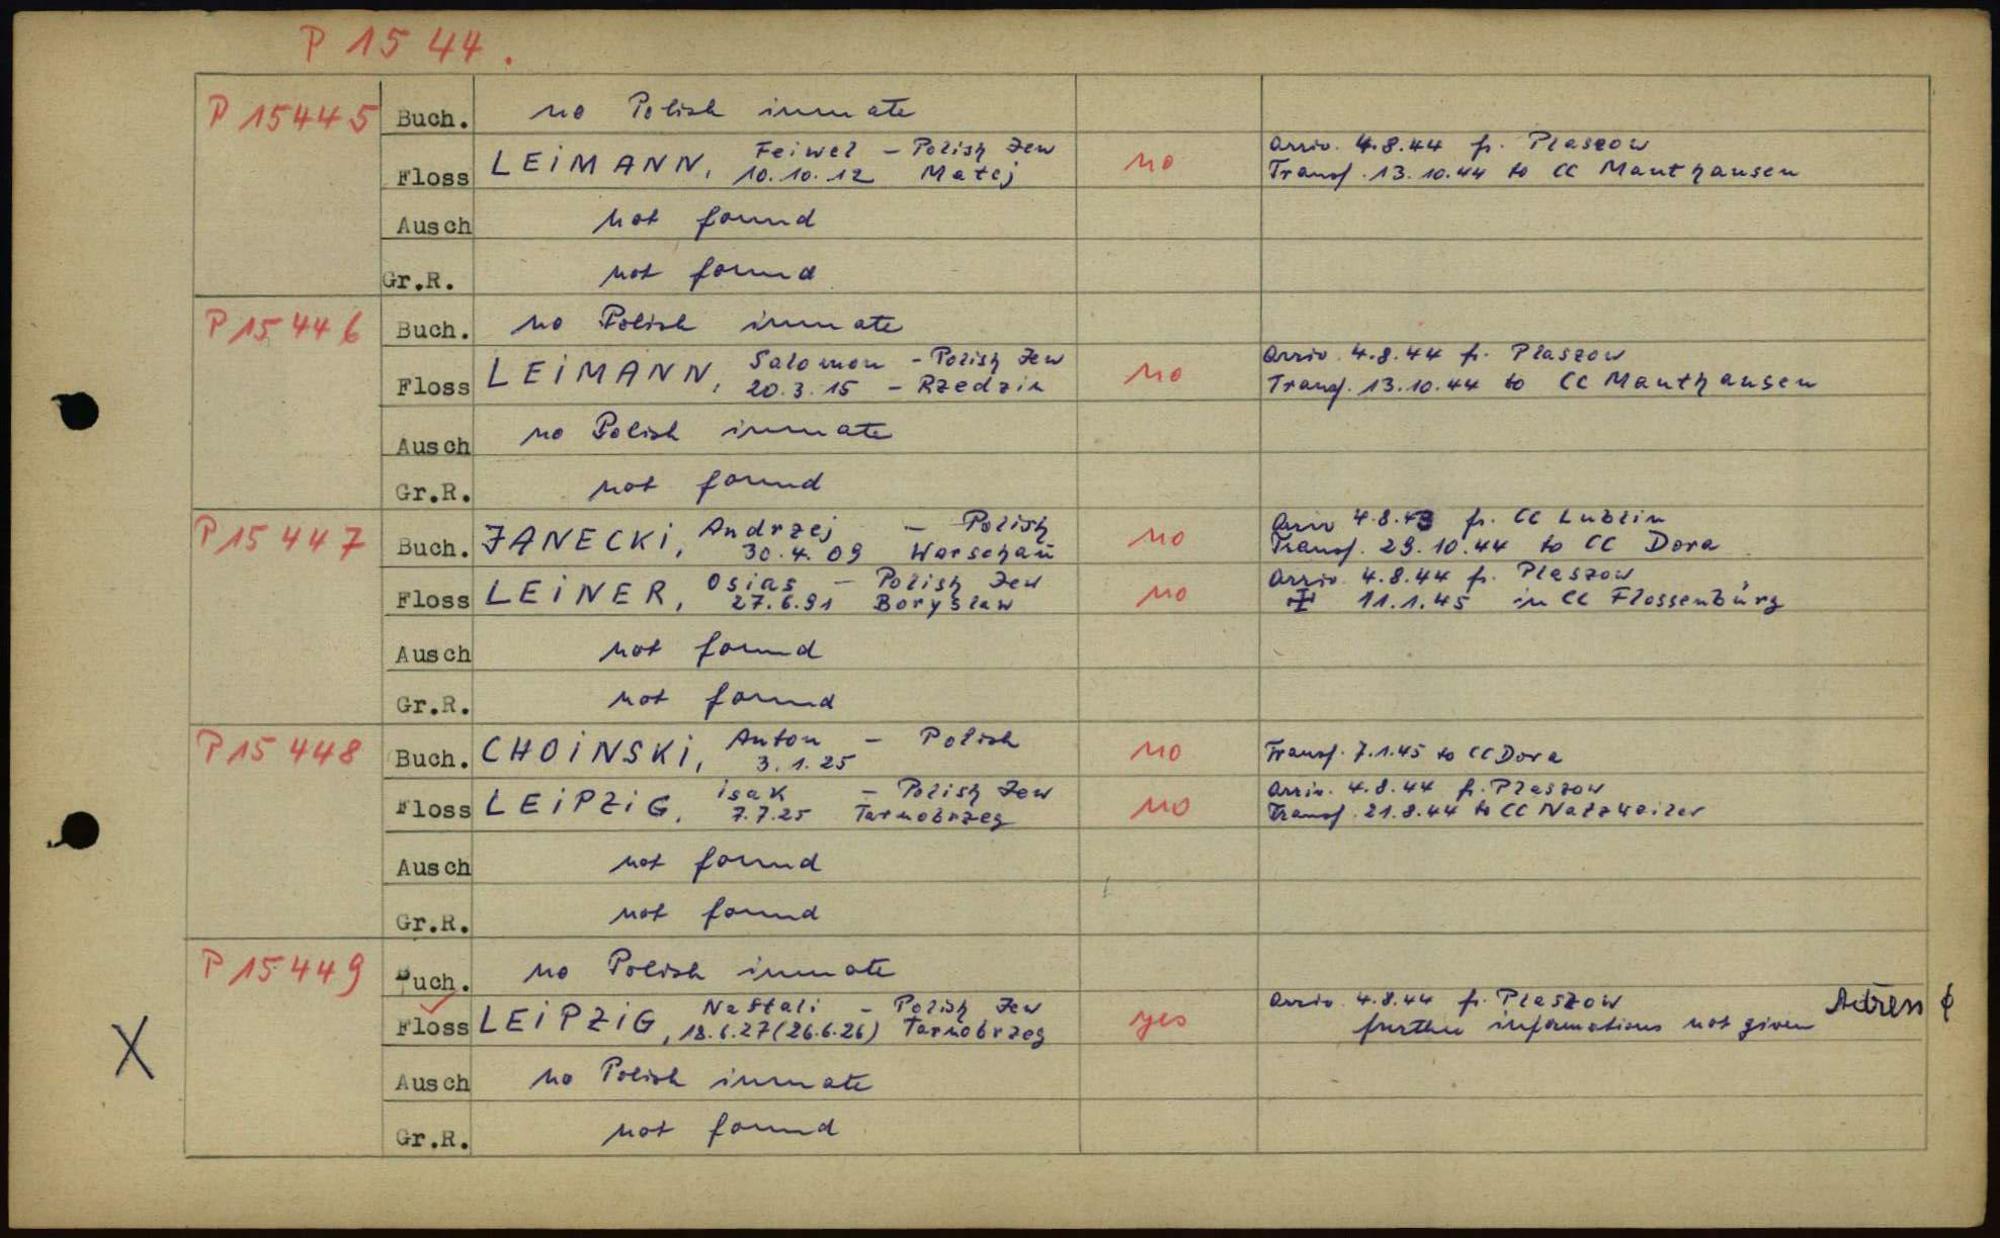 P 15 44.
P 15445 Buch. no Polish inmate
Floss LEIMANN, Feiwel - Polish Jew no Arriv. 4.8.44 fr. Plaszow
10.10.12 Matej Transf. 13.10.44 to CC Mauthausen
Ausch not found
Gr.R. not found
P 15 446 Buch. no Polish inmate
Floss LEIMANN, Salomon - Polish Jew no Arriv. 4.8.44 fr. Plaszow
20.3.15 - Rzedzin Transf. 13.10.44 to CC Mauthausen
Ausch no Polish inmate
Gr.R. not found
P 15 447 Buch. JANECKI, Andrzej - Polish no Arriv 4.8.43 fr. CC Lublin
30.4.09 Warschau Transf. 29.10.44 to CC Dora
Floss LEINER, Osias - Polish Jew no Arriv. 4.8.44 fr. Plaszow
27.6.91 Boryslaw 11.1.45 in CC Flossenbürg
Ausch not found
Gr.R. not found
P 15 448 Buch. CHOINSKI, Anton - Polish no Transf. 7.1.45 to CC Dora
3.1.25
Floss LEIPZIG, Isak - Polish Jew no Arriv. 4.8.44 fr. Plaszow
7.7.25 Tarnobrzeg Transf. 21.8.44 to CC Natzweiler
Ausch not found
Gr.R. not found
P 15 449 Buch. no Polish inmate
Floss LEIPZIG, Naftali - Polish Jew yes Arriv. 4.8.44 fr. Plaszow
18.6.27 (26.6.26) Tarnobrzeg further informations not given
X
Ausch no Polish inmate
Gr.R. not found